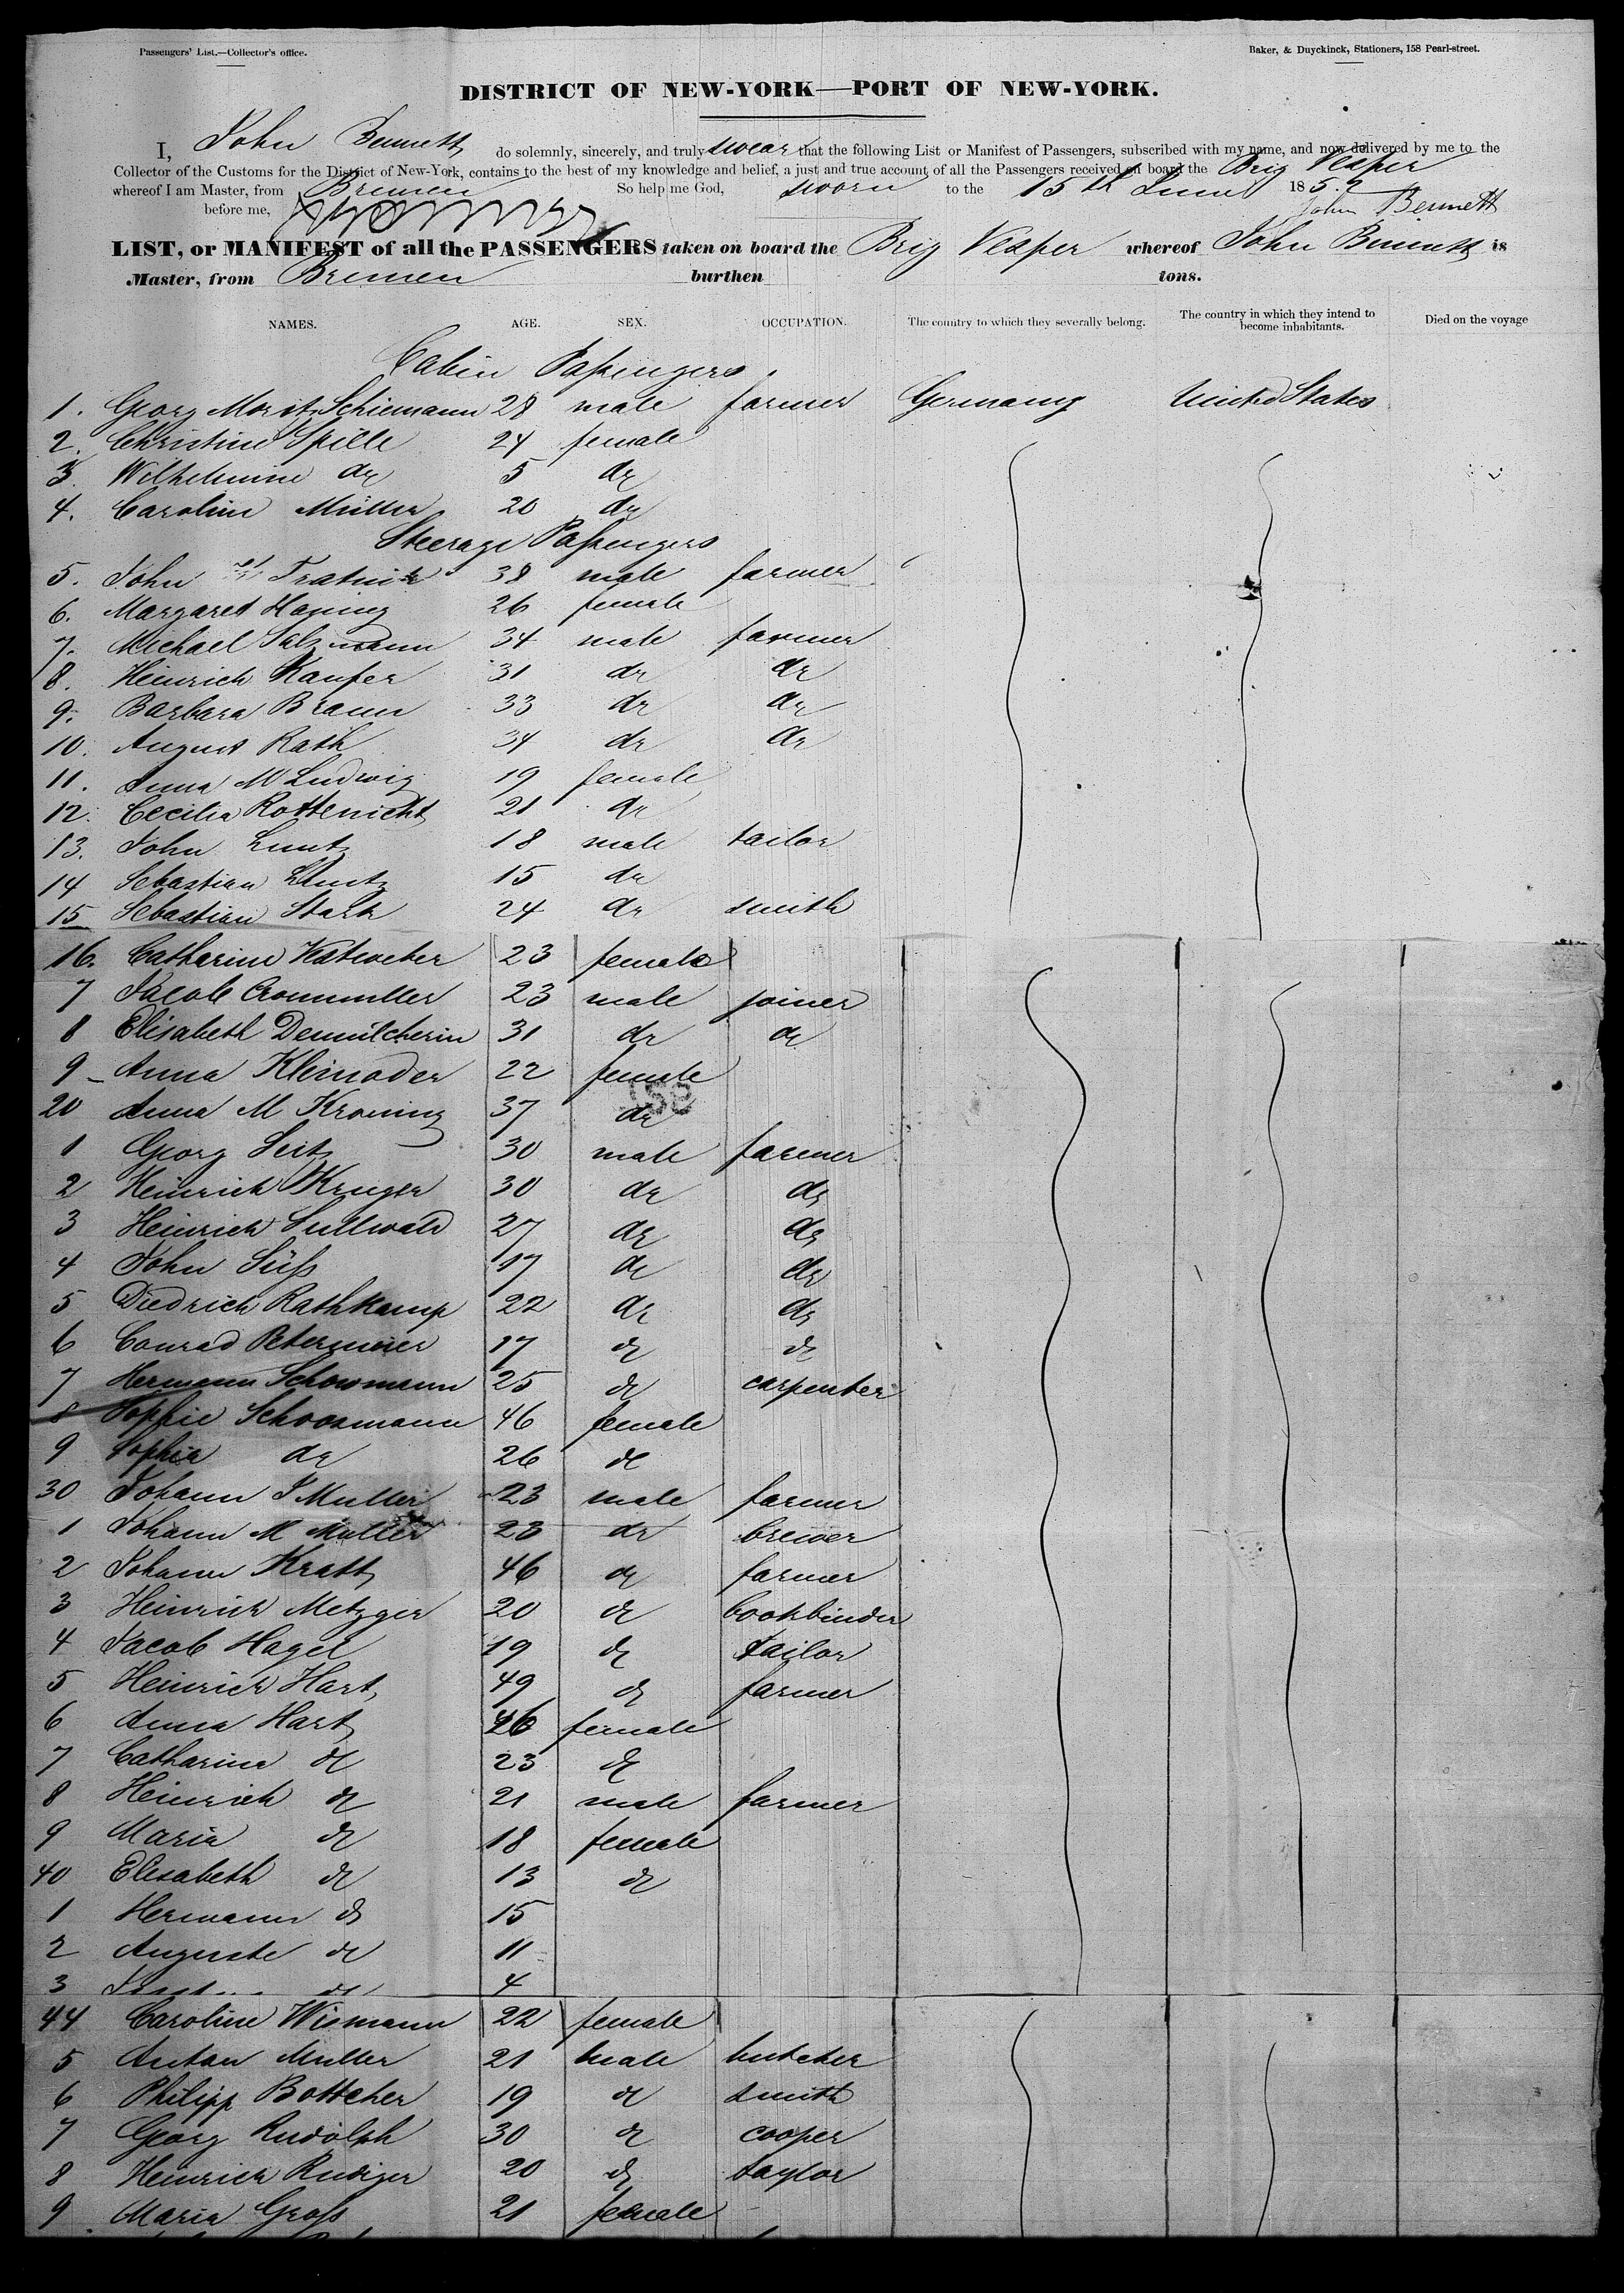 Passengers' List.—Collector's office.
Baker, & Duyckinck, Stationers, 158 Pearl-street.
DISTRICT OF NEW-YORK—PORT OF NEW-YORK.
I, John Bennett do solemnly, sincerely, and truly swear that the following List or Manifest of Passengers, subscribed with my name, and now delivered by me to the
Collector of the Customs for the District of New-York, contains to the best of my knowledge and belief, a just and true account of all the Passengers received on board the Brig Vesper
whereof I am Master, from Bremen So help me God, sworn to the 15th June 1852
before me, John Bennett
LIST, or MANIFEST of all the PASSENGERS taken on board the Brig Vesper whereof John Bennett is
Master, from Bremen burthen tons.
NAMES. AGE. SEX. OCCUPATION. The country to which they severally belong. The country in which they intend to become inhabitants. Died on the voyage
Cabin Passengers
1. Georg Moritz Schiemann 28 male farmer Germany United States
2. Christine Spille 24 female
3. Wilhelmine do 5 do
4. Caroline Müller 20 do
Steerage Passengers
5. John 38 male farmer
6. Margaret 26 female
7. Michael Salzmann 34 male farmer
8. Heinrich Kaufer 31 do do
9. Barbara Braun 33 do do
10. August Rath 34 do do
11. Anna M Ludwig 19 female
12. Cecilia Rottenicht 21 do
13. John Luntz 18 male tailor
14 Sebastian Luntz 15 do
15 Sebastian Stark 24 do smith
16. Catharine 23 female
7 Jacob Cronmuller 23 male joiner
8 Elisabeth 31 do do
9 Anna Kleinoder 22 female
20 Anna M Kroning 37 do
1 Georg Seitz 30 male farmer
2 Heinrich Kruger 30 do do
3 Heinrich Sullwald 27 do do
4 John Süß 17 do do
5 Diedrich Rathkamp 22 do do
6 Conrad Petermeier 17 do do
7 Hermann Schowmann 25 do carpenter
8 Sophie Schoosmann 46 female
9 Sophia do 26 do
30 Johann J Muller 23 male farmer
1 Johann M Muller 23 do brewer
2 Johann Kratt 46 do farmer
3 Heinrich Metzger 20 do bookbinder
4 Jacob Hagel 19 do tailor
5 Heinrich Hart 49 do farmer
6 Anna Hart 46 female
7 Catharina do 23 do
8 Heinrich do 21 male farmer
9 Maria do 18 female
40 Elisabeth do 13 do
1 Hermann do 15
2 Auguste do 11
3 do 4
44 Caroline Wismann 22 female
5 Anton Muller 21 male butcher
6 Philipp Bottcher 19 do smith
7 Georg Rudolph 30 do cooper
8 Heinrich Rudiger 20 do taylor
9 Maria Groß 21 female